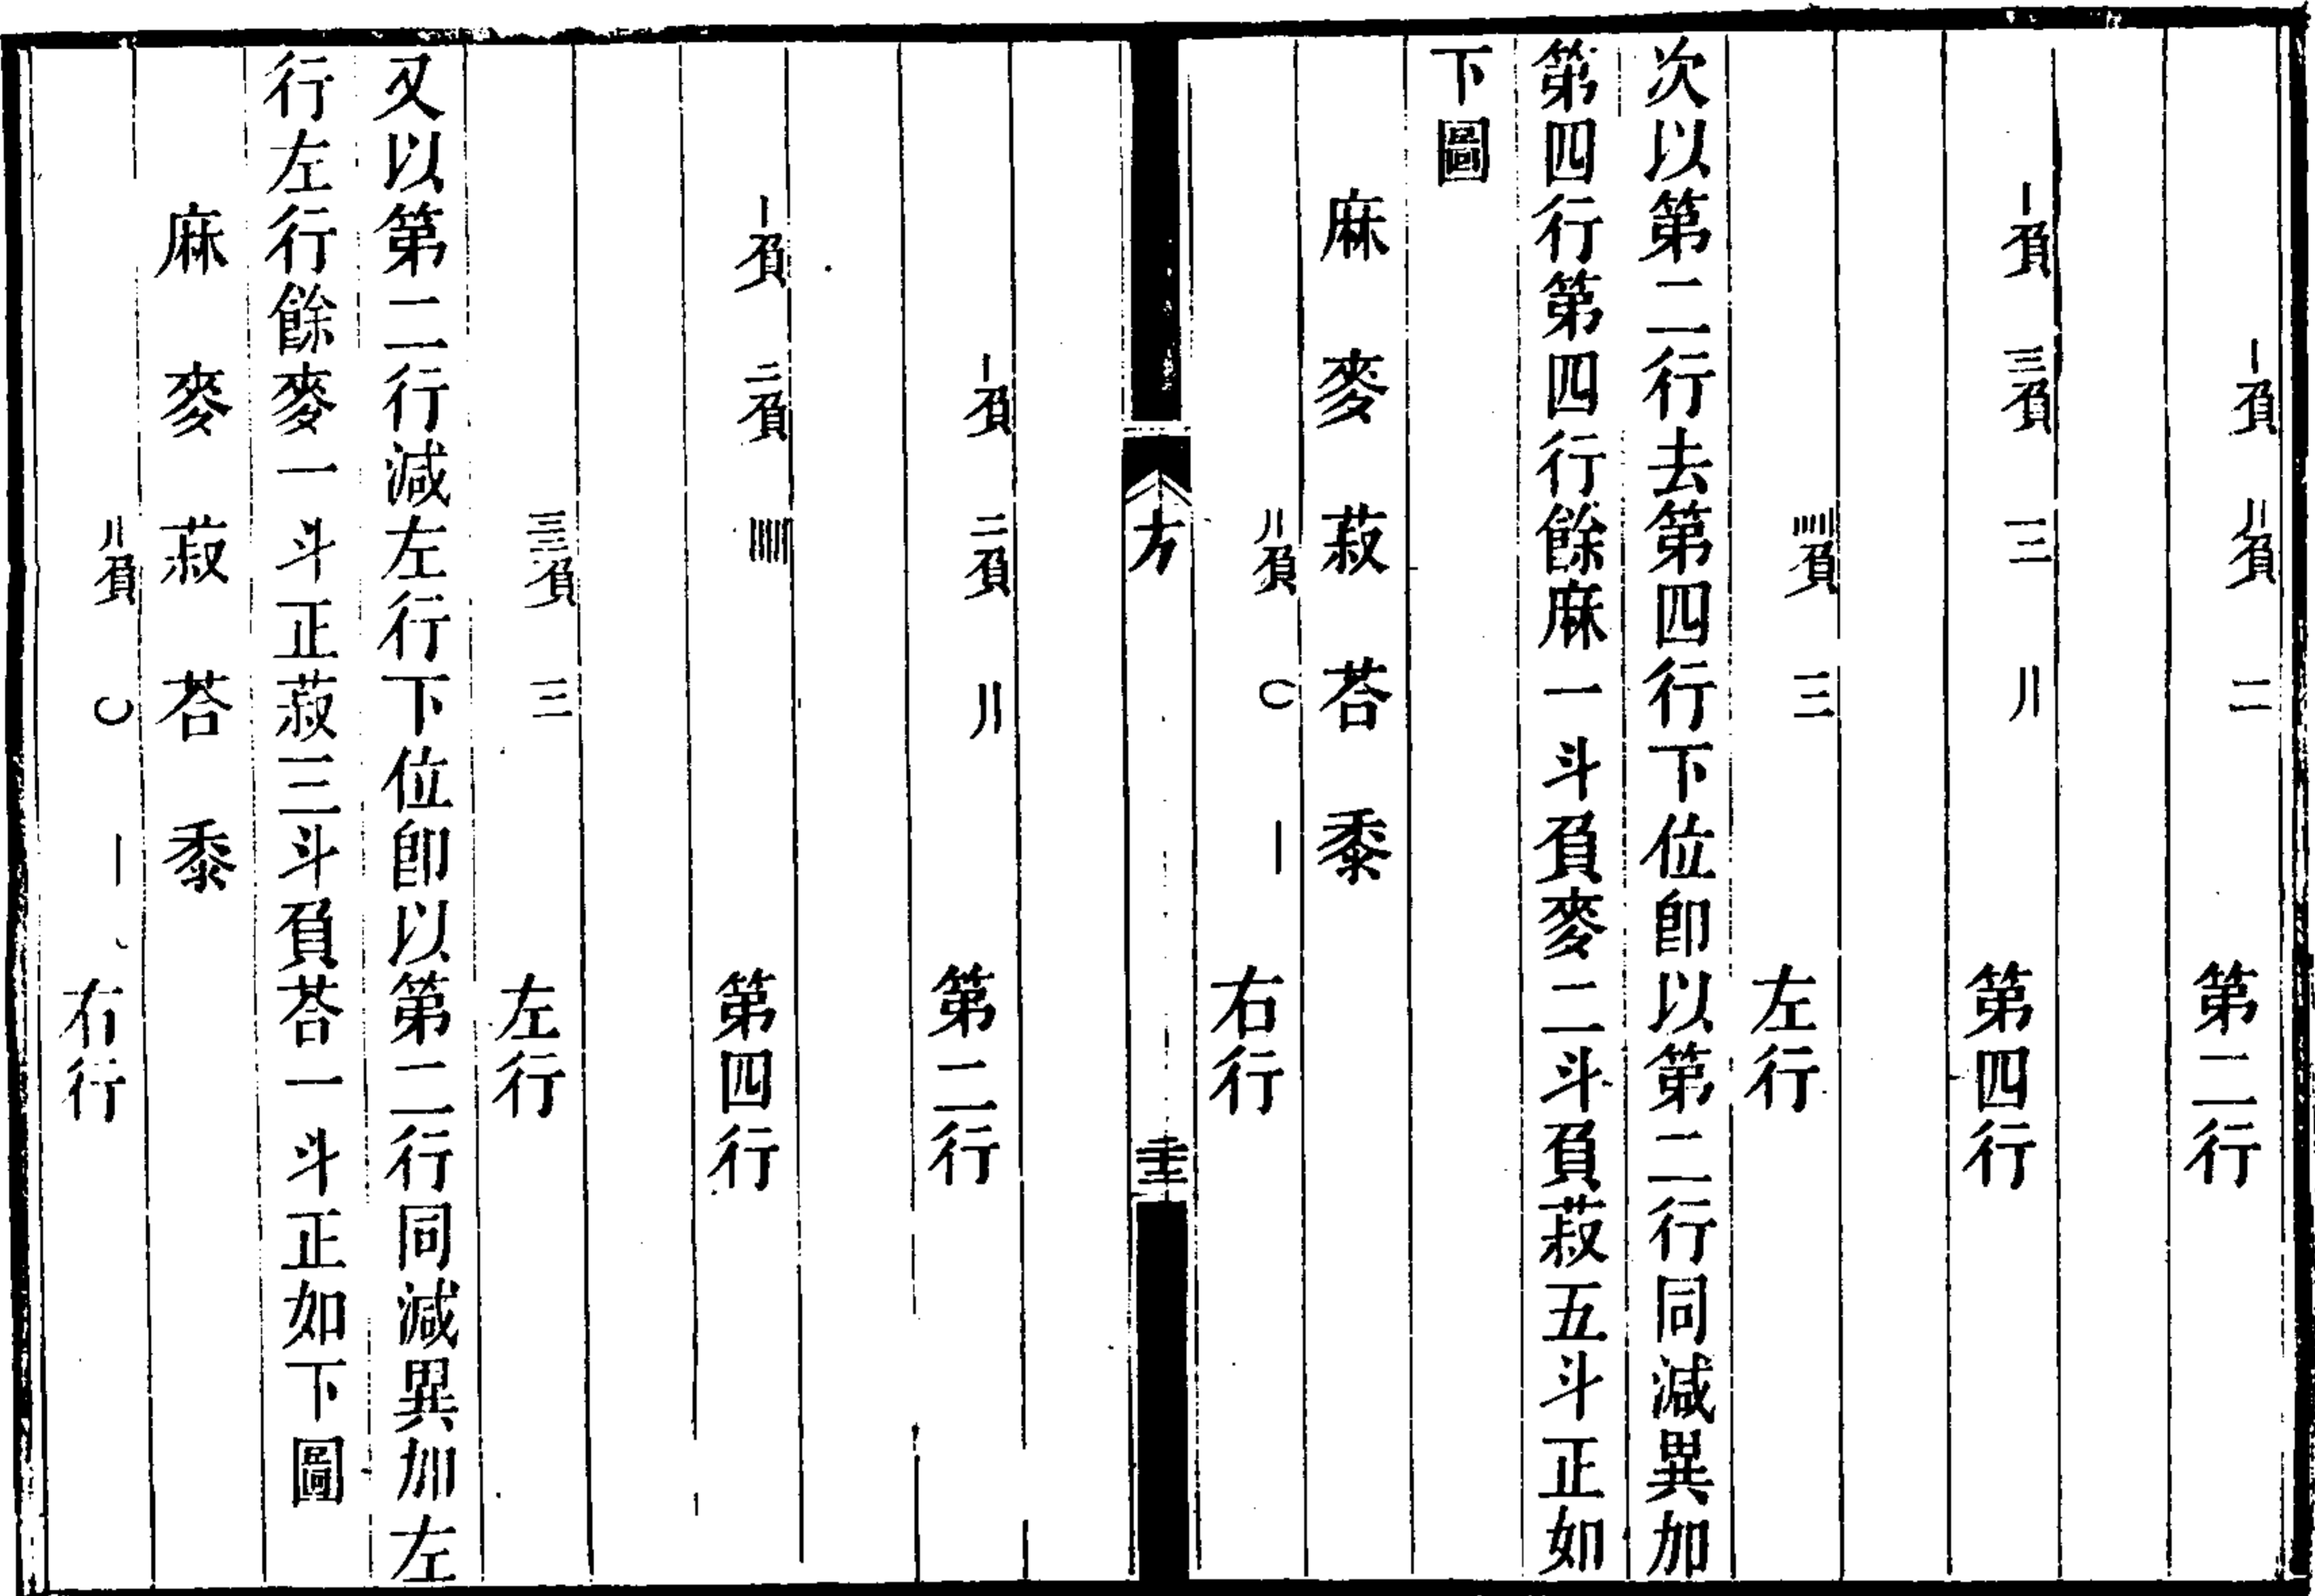 〡負 〢負 二 第二行
〡負 三負 三 〢 第四行
〣負 三 左行
次以第二行去第四行下位卽以第二行同減異加
第四行第四行餘麻一斗負麥二斗負菽五斗正如
下圖
麻 麥 菽 荅 黍
〢負 〇 〡 右行
方
〡負 二負 〢 第二行
〡負 二負 𝍤 第四行
三 左行
又以第二行減左行下位卽以第二行同減異加左
行左行餘麥一斗正菽三斗負荅一斗正如下圖
麻 麥 菽 荅 黍
〢負 〇 〡 右行